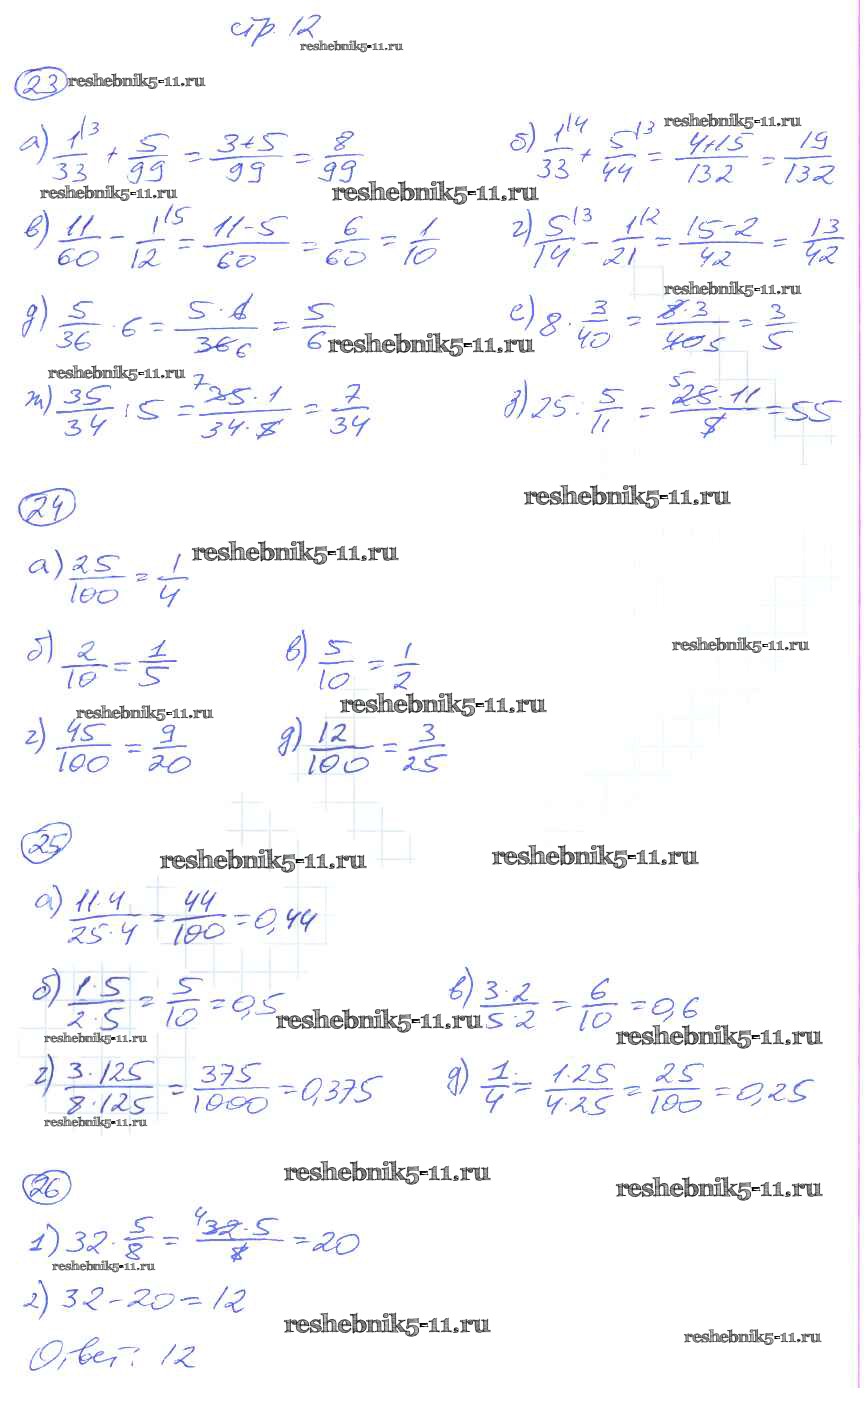 стр. 12
reshebnik5-11.ru
23 reshebnik5-11.ru
reshebnik5-11.ru
а) 1/33 |3 + 5/99 = (3+5)/99 = 8/99 б) 1/33 |4 + 5/44 |3 = (4+15)/132 = 19/132
reshebnik5-11.ru reshebnik5-11.ru
в) 11/60 - 1/12 |5 = (11-5)/60 = 6/60 = 1/10 г) 5/14 |3 - 1/21 |2 = (15-2)/42 = 13/42
reshebnik5-11.ru
д) 5/36 · 6 = (5·6)/(36 6) = 5/6 е) 8 · 3/40 = (8·3)/(40 5) = 3/5
reshebnik5-11.ru
reshebnik5-11.ru
ж) 35/34 : 5 = (7 35·1)/(34·5) = 7/34 з) 25 : 5/11 = (5 25·11)/5 = 55
24
reshebnik5-11.ru
reshebnik5-11.ru
а) 25/100 = 1/4
б) 2/10 = 1/5 в) 5/10 = 1/2
reshebnik5-11.ru
reshebnik5-11.ru reshebnik5-11.ru
г) 45/100 = 9/20 д) 12/100 = 3/25
25
reshebnik5-11.ru reshebnik5-11.ru
а) (11·4)/(25·4) = 44/100 = 0,44
б) (1·5)/(2·5) = 5/10 = 0,5 в) (3·2)/(5·2) = 6/10 = 0,6
reshebnik5-11.ru reshebnik5-11.ru reshebnik5-11.ru
г) (3·125)/(8·125) = 375/1000 = 0,375 д) 1/4 = (1·25)/(4·25) = 25/100 = 0,25
reshebnik5-11.ru
26
reshebnik5-11.ru reshebnik5-11.ru
1) 32 · 5/8 = (4 32·5)/8 = 20
reshebnik5-11.ru
2) 32 - 20 = 12
reshebnik5-11.ru reshebnik5-11.ru
Ответ: 12